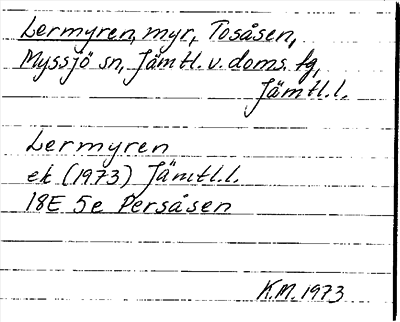 Lermyren, myr, Tosåsen,
Myssjö sn, Jämtl. v. doms. fg,
Jämtl.l.
Lermyren
ek (1973) Jämtl.l.
18E 5e Persåsen
K.M. 1973